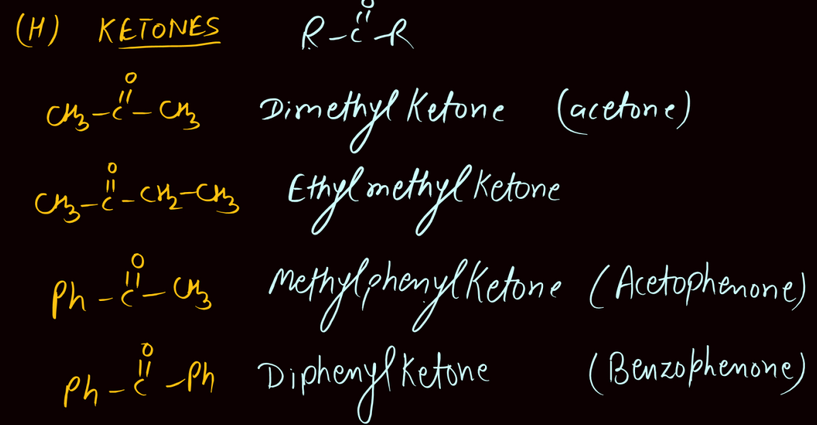 (H) KETONES R-C(=O)-R
CH3-C(=O)-CH3 Dimethyl Ketone (acetone)
CH3-C(=O)-CH2-CH3 Ethylmethyl Ketone
Ph-C(=O)-CH3 Methylphenyl Ketone (Acetophenone)
Ph-C(=O)-Ph Diphenyl Ketone (Benzophenone)